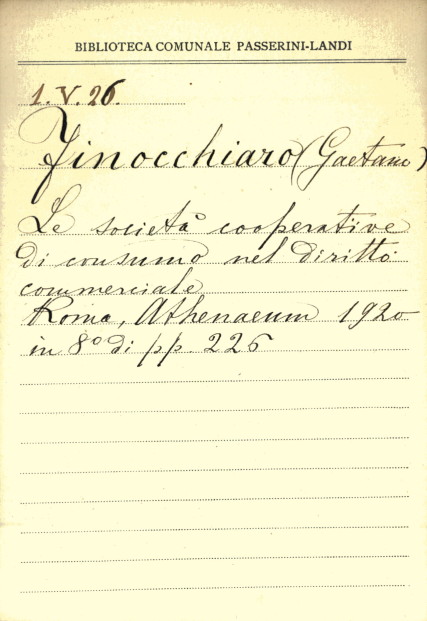 BIBLIOTECA COMUNALE PASSERINI-LANDI
1.V.26.
Finocchiaro (Gaetano)
Le società cooperative
di consumo nel diritto
commerciale
Roma, Athenaeum 1920
in 8º di pp. 226